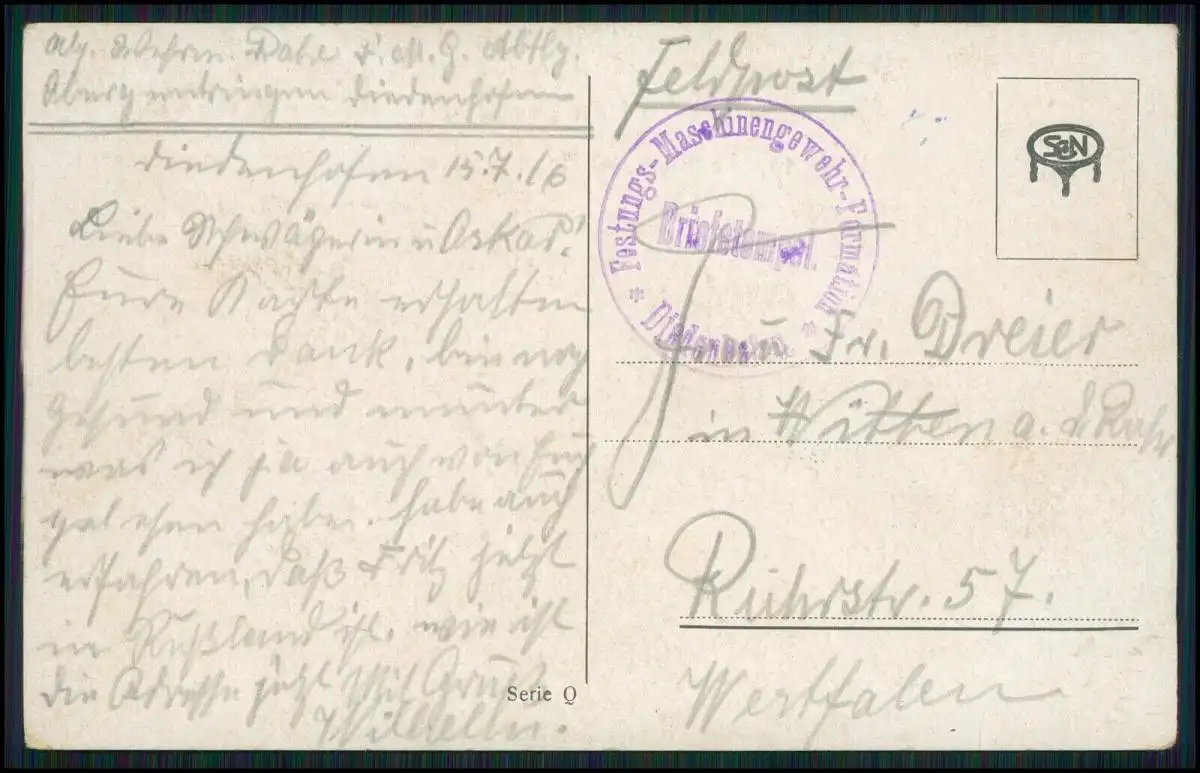 Wehrm. F. M. G. Abtlg.
Diedenhofen
Diedenhofen 15.7.16
Liebe Schwägerin u Oskar!
Eure Karte erhalten
besten Dank, bin noch
gesund und munter
was ich ja auch von Euch
gesehen habe. habe auch
erfahren, daß Fritz jetzt
in Rußland ist. wie ist
die Adresse jetzt Mit Gruß
Wilhelm.
Serie Q
Feldpost
Festungs-Maschinengewehr-Formation
Briefstempel.
* Diedenhofen *
S&N
Frau Fr. Dreier
in Witten a. d Ruhr
Ruhrstr. 57.
Westfalen